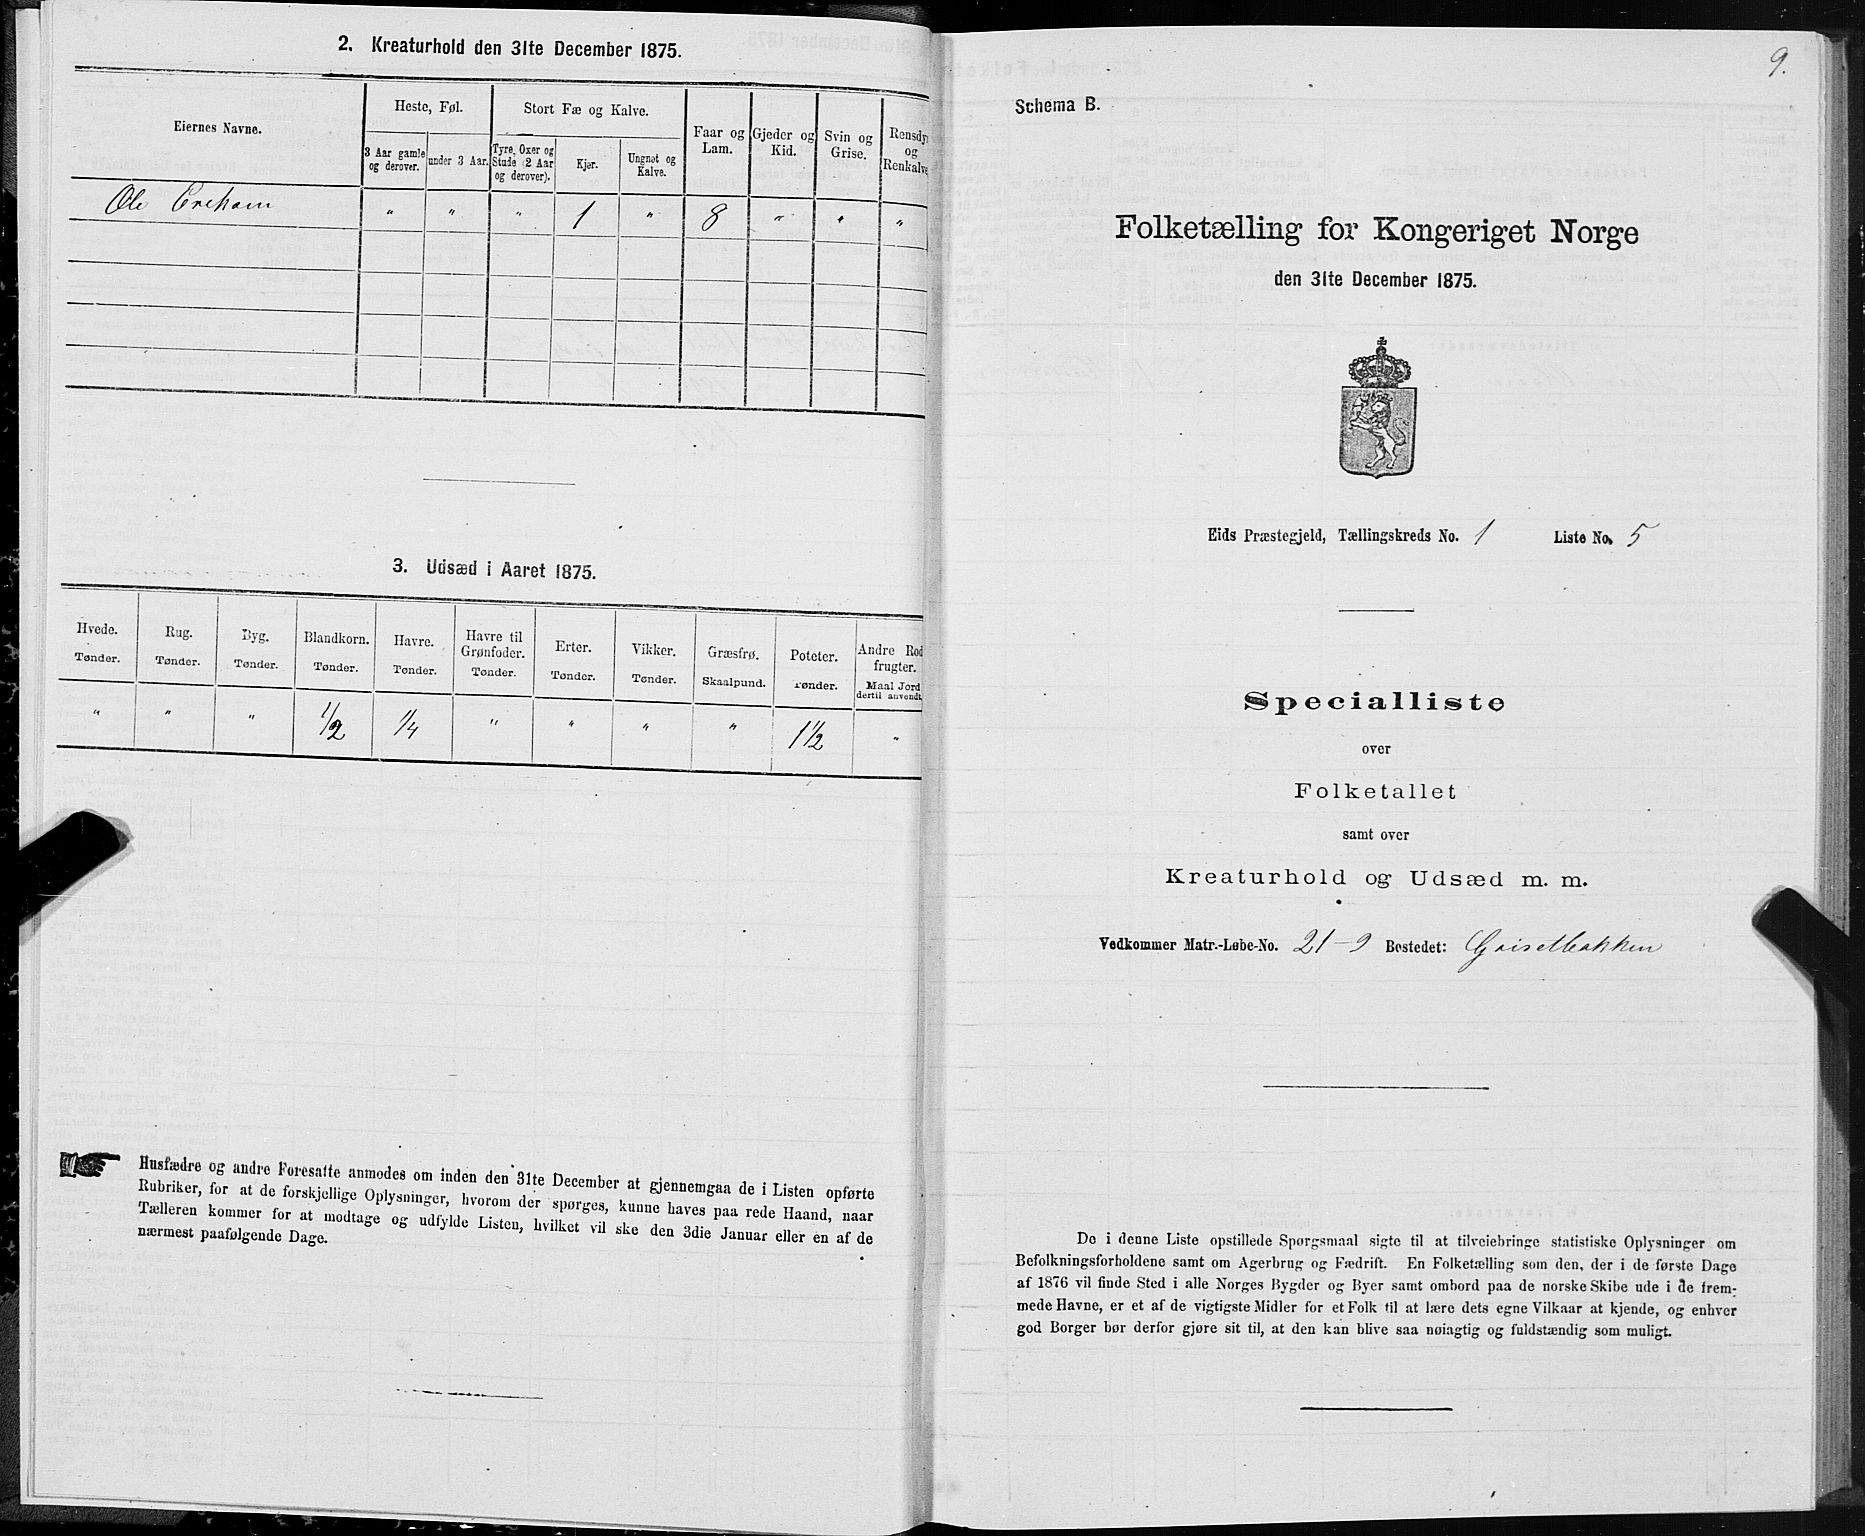 2. Kreaturhold den 31te December 1875.
Eiernes Navne.
Heste, Føl.
Stort Fæ og Kalve.
Faar og Lam.
Gjeder og Kid.
Svin og Grise.
Rensdy
og
Renkalve
3 Aar gamle og derover.
under 3 Aar.
Tyre, Oxer og Stude (2 Aar og derover).
Kjør.
Ungnøt og Kalve.
Ole " " " 1 " 8 " " "
3. Udsæd i Aaret 1875.
Hvede. Rug. Byg. Blandkorn. Havre. Havre til Grønfoder. Erter. Vikker. Græsfrø. Poteter. Andre Rod frugter.
Tønder. Tønder. Tønder. Tønder. Tønder. Tønder. Tønder. Tønder. Skaalpund. Tønder. Maal Jord dertil anvendt
" " " 1/2 1/4 " " " " 1 1/2 "
Husfædre og andre Foresatte anmodes om inden den 31te December at gjennemgaa de i Listen opførte
Rubriker, for at de forskjellige Oplysninger, hvorom der spørges, kunne haves paa rede Haand, naar
Tælleren kommer for at modtage og udfylde Listen, hvilket vil ske den 3die Januar eller en af de
nærmest paafølgende Dage.
9.
Schema B.
Folketælling for Kongeriget Norge
den 31te December 1875.
Eids Præstegjeld, Tællingskreds No. 1 Liste No. 5
Specialliste
over
Folketallet
samt over
Kreaturhold og Udsæd m. m.
Vedkommer Matr.-Løbe-No. 21-9 Bostedet: Grisetbakken
De i denne Liste opstillede Spørgsmaal sigte til at tilveiebringe statistiske Oplysninger om
Befolkningsforholdene samt om Agerbrug og Fædrift. En Folketælling som den, der i de første Dage
af 1876 vil finde Sted i alle Norges Bygder og Byer samt ombord paa de norske Skibe ude i de frem-
mede Havne, er et af de vigtigste Midler for et Folk til at lære dets egne Vilkaar at kjende, og enhver
god Borger bør derfor gjøre sit til, at den kan blive saa nøiagtig og fuldstændig som muligt.